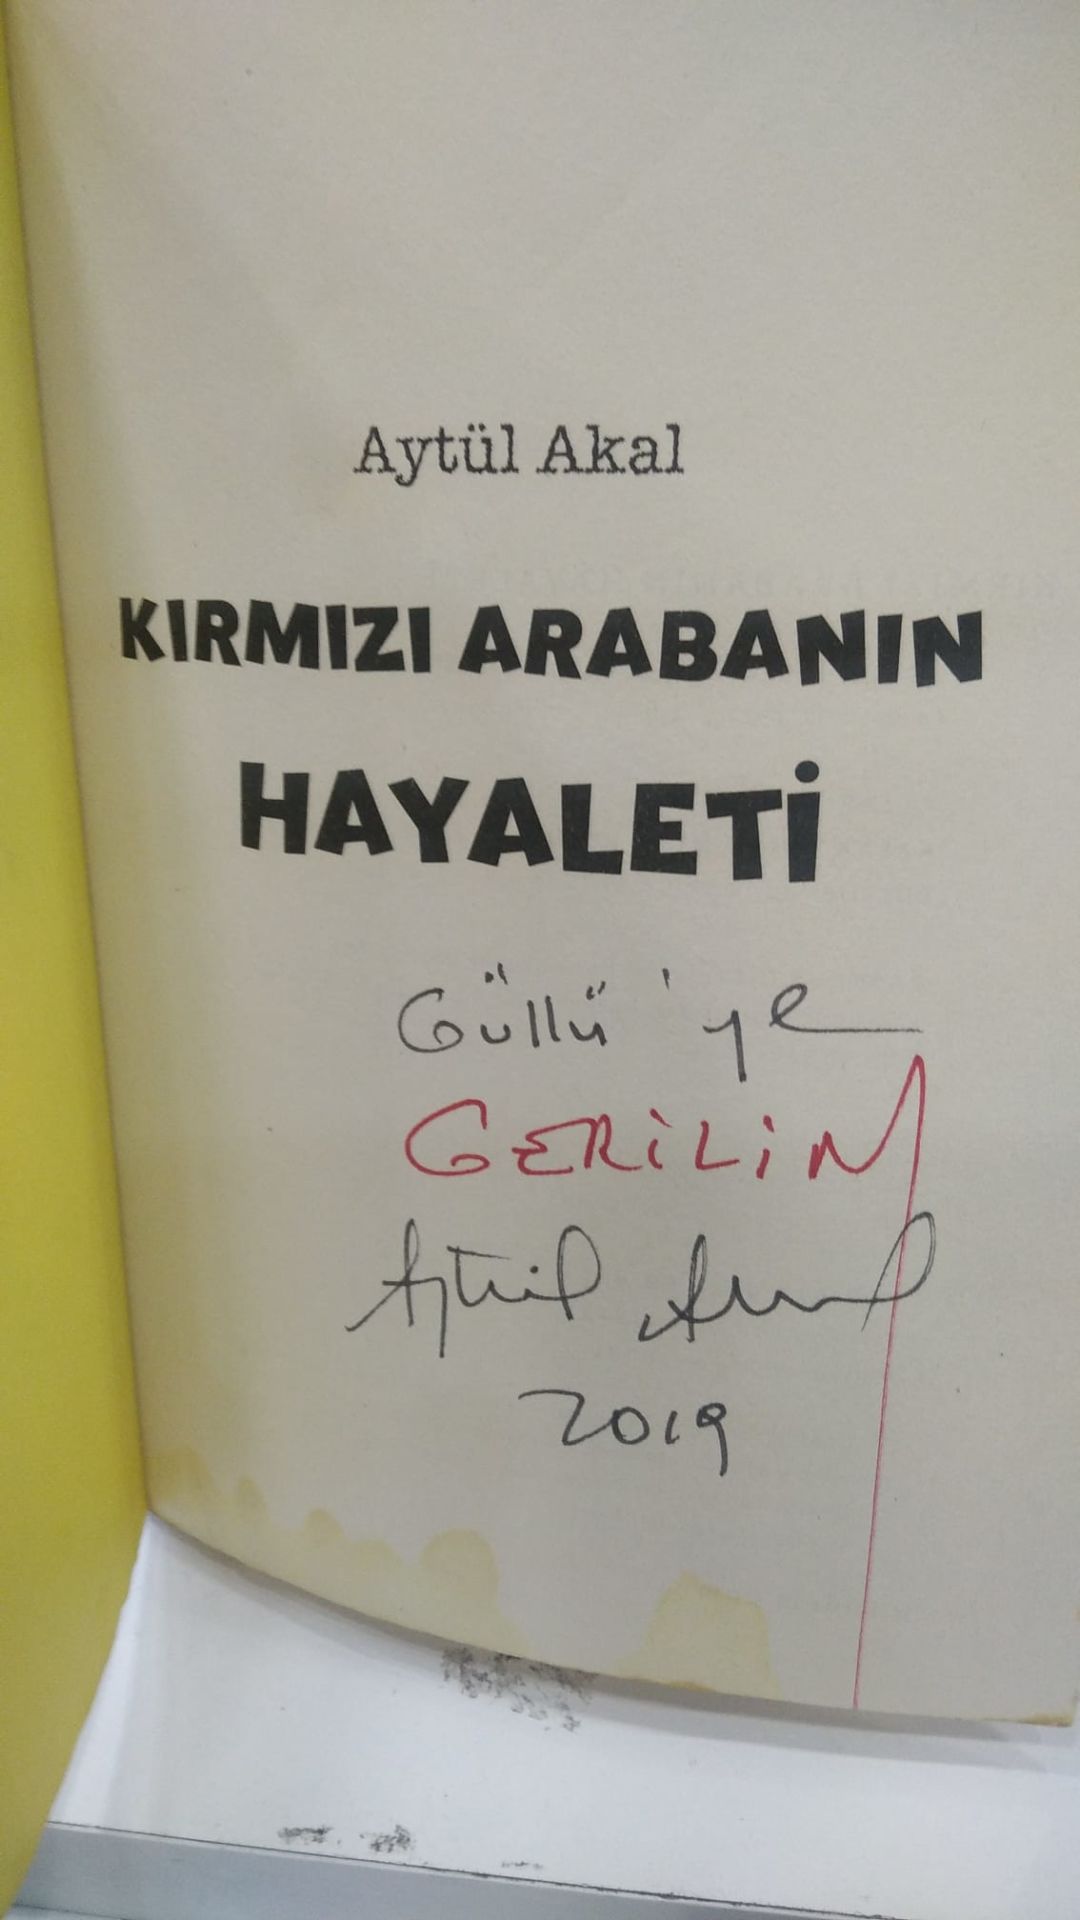 Aytül Akal
KIRMIZI ARABANIN
HAYALETİ
Güllü'ye
GERİLİM
Aytül Akal
2019